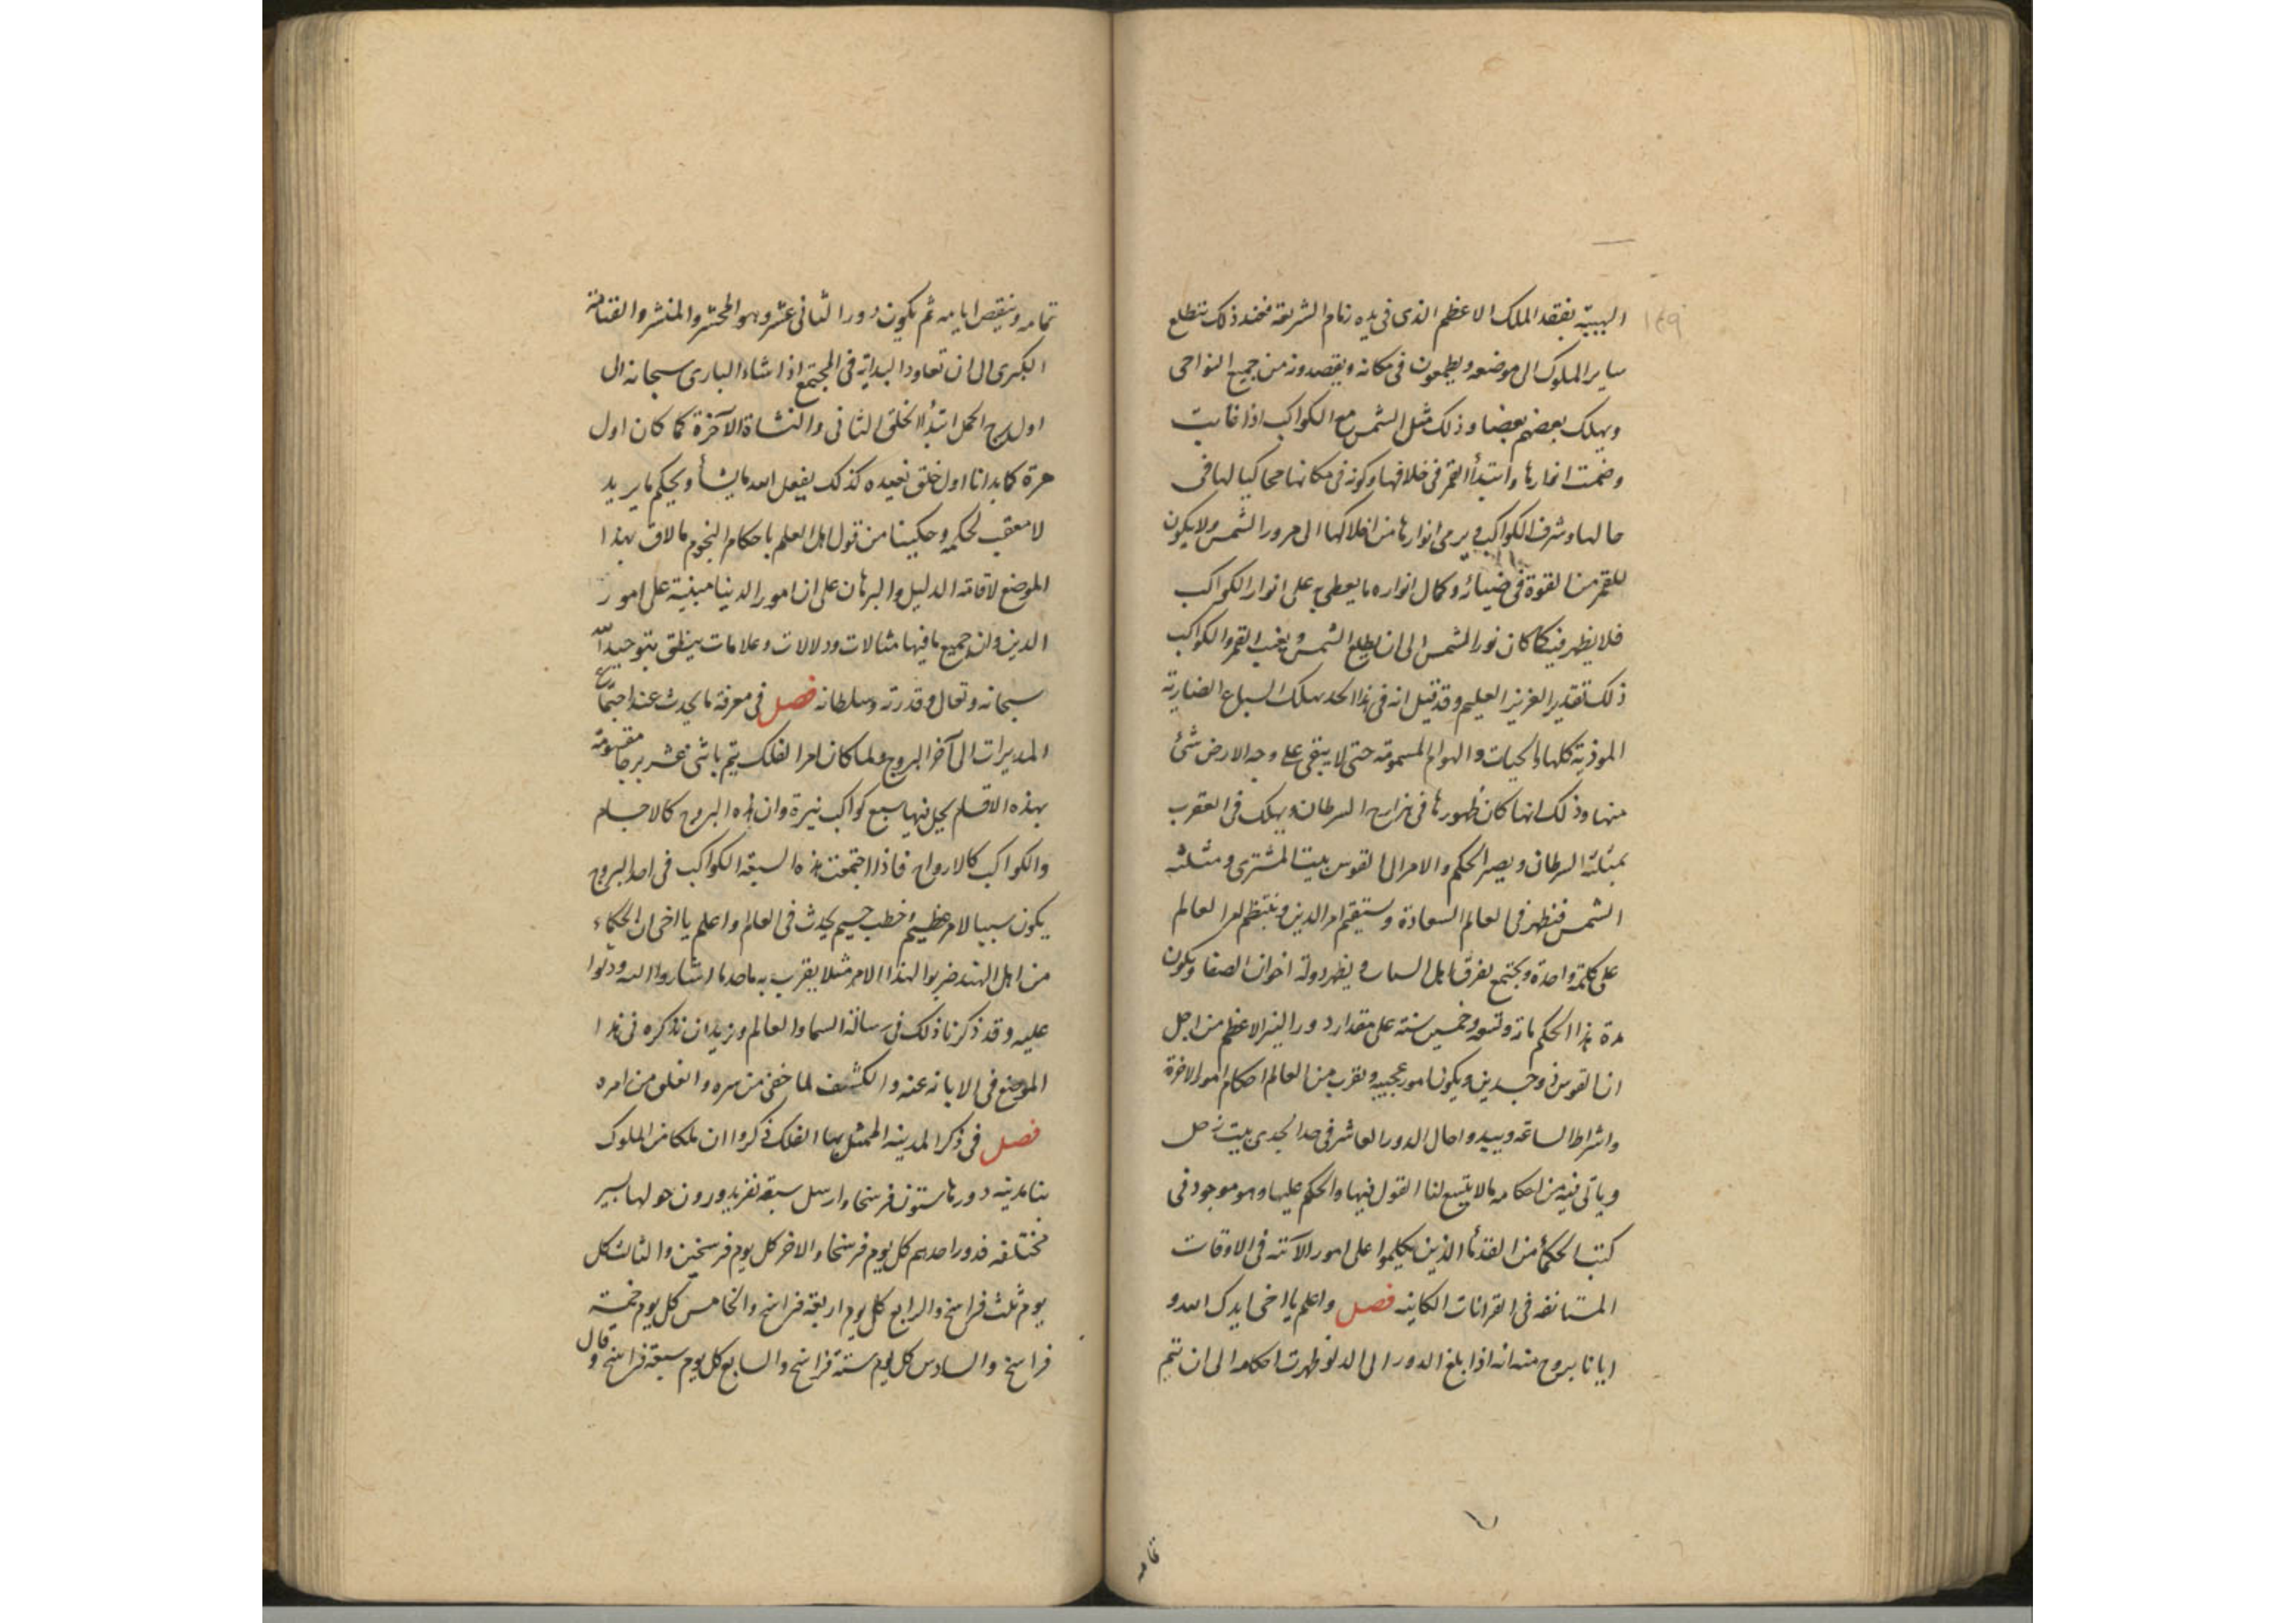 ١٤٩
الهيبة بفقد الملك الاعظم الذى فى يده زمام الشريعة فعند ذلك تتطلع
ساير الملوك الى موضعه ويطمعون فى مكانه ويقصدونه من جميع النواحى
ويهلك بعضهم بعضا وذلك مثل الشمس مع الكواكب اذا غابت
وضمت انوارها وابتدأ القمر فى خلافها وكونه فى مكانها محاكيا لها فى
حالها وشرف الكواكب يرمى انوارها من افلاكها الى مرور الشمس ولا يكون
للقمر من القوة فى ضيائه وكمال انواره ما يعطى على انوار الكواكب
فلا يظهر فيه كما كان نور الشمس الى ان يطلع الشمس ويغب القمر والكواكب
ذلك تقدير العزيز العليم وقد قيل انه فى هذا الحد يهلك السباع الضارية
الموذية كلها والحيات والهوام المسمومة حتى لا يبقى على وجه الارض شئ
منها وذلك انها كان ظهورها فى السرطان ويهلك فى العقرب
بمثلثة السرطان ويصير الحكم والامر الى القوس بيت المشترى ومثلثه
الشمس فتظهر فى العالم السعادة ويستقيم امر الدين وينتظم امر العالم
على كلمة واحدة ويجتمع يفرق اهل السما ويظهر دولة اخوان الصفا ويكون
مدة هذا الحكم مائة وتسعة وخمسين سنة على مقدار دور النير الاعظم من اجل
ان القوس ذو جسدين ويكون امور عجيبه ويقرب من العالم احكام امور الاخرة
واشراط الساعة ويبدو احال الدور العاشر فى حد الجدى بيت زحل
وياتى فيه من احكامه ما لا يتسع لنا القول فيها والحكم عليها وهو موجود فى
كتب الحكمأ من القدمأ الذين تكلموا على امور الآتيه فى الاوقات
المستانفه فى القرانات الكاينه فصل واعلم يا اخى ايدك الله و
ايانا بروح منه انه اذا بلغ الدور الى الدلو ظهرت احكامه الى ان تتم
تمامه
تمامه وينقص ايامه ثم يكون دور الثانى عشر وهو المحشر والمنشر والقيامة
الكبرى الى ان تعاود البداية فى المجتمع اذا شاء البارى سبحانه الى
اول برج الحمل ابتدأ الخلق الثانى والنشاة الآخرة كما كان اول
مرة كما بدانا اول خلق نعيده كذلك يفعل الله ما يشأ ويحكم ما يريد
لا معقب لحكمه وحكينا من قول اهل العلم باحكام النجوم ما لاق بهذا
الموضع لاقامة الدليل والبرهان على ان امور الدنيا مبنية على امور
الدين وان جميع ما فيها مثالات ودلالات وعلامات ينطق بتوحيد الله
سبحانه وتعالى وقدرته وسلطانه فصل فى معرفة ما يحدث عند اجتماع
المديرات الى آخر البروج ولما كان امر الفلك يتم باثنى عشر برجا مقسومة
بهذه الاقسام يحل فيها سبع كواكب نيرة وان هذه البروج كالاجسام
والكواكب كالارواح فاذا اجتمعت هذه السبعة الكواكب فى احد البروج
يكون سببا لامر عظيم وخطب جسيم يحدث فى العالم واعلم يا اخى ان الحكماء
من اهل الهند ضربوا لهذا الامر مثلا يقرب به ما اشاروا اليه ودلوا
عليه وقد ذكرنا ذلك فى رسالة السما والعالم ونريد ان نذكره فى هذا
الموضع فى الابانه عنه والكشف لما خفى من سره والغلق من امره
فصل فى ذكر المدينه الممثل بها الفلك ذكروا ان ملكا من الملوك
بنا مدينه دورها ستون فرسخا وارسل سبعة نفر يدورون حولها بسير
مختلفه فدور احدهم كل يوم فرسخا والاخر كل يوم فرسخين والثالث كل
يوم ثلث فراسخ والرابع كل يوم اربعة فراسخ والخامس كل يوم خمسة
فراسخ والسادس كل يوم ستة فراسخ والسابع كل يوم سبعة فراسخ وقال